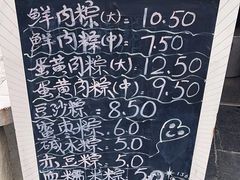 鲜肉粽(大) 10.50
鲜肉粽(中) 7.50
蛋黄肉粽(大) 12.50
蛋黄肉粽(中) 9.50
豆沙粽 8.50
蜜枣粽 6.0
碱水粽 5.0
赤豆粽 5.0
血糯米粽 5.0